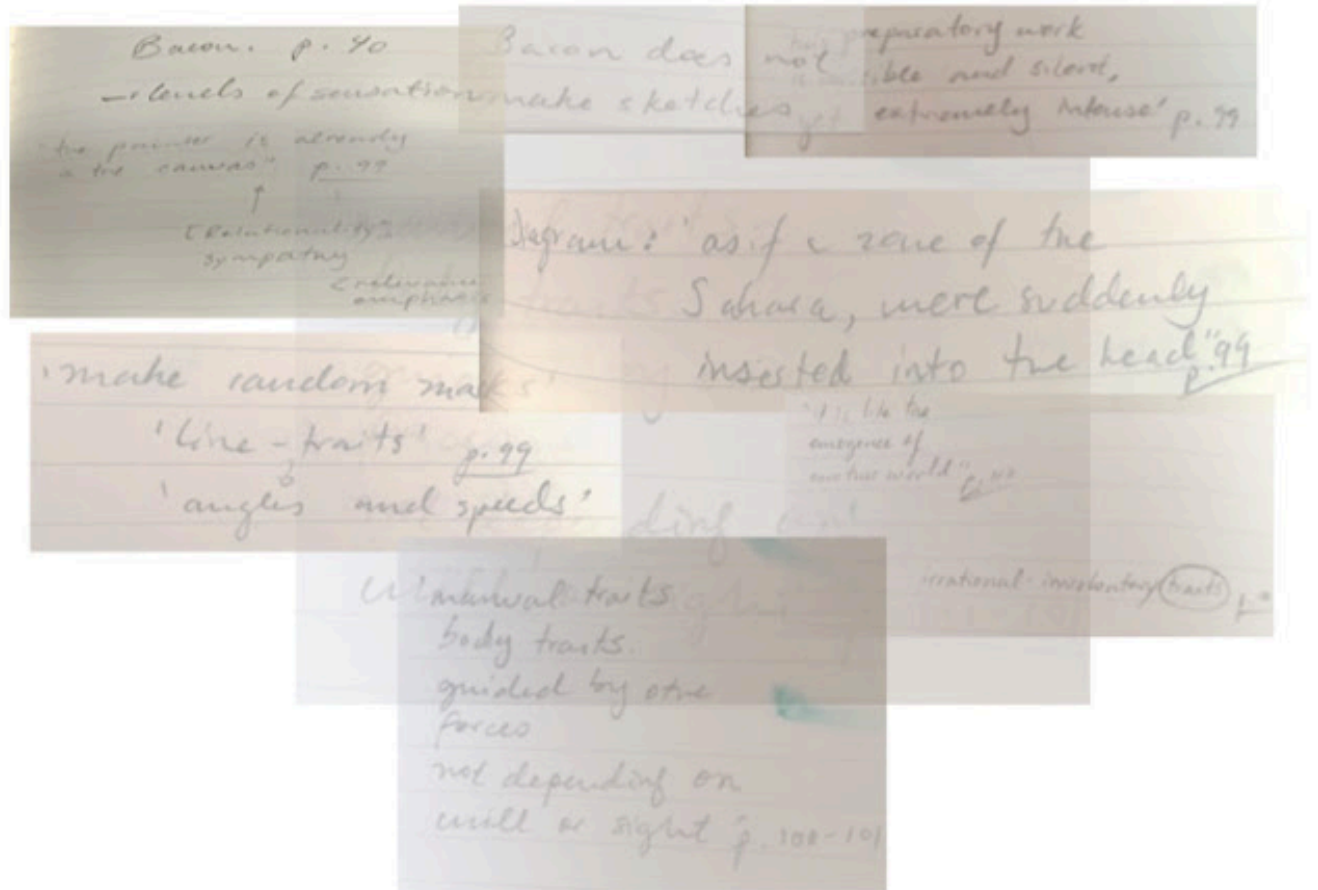 Bacon. p. 40
→ levels of sensation
"the painter is already
in the canvas" p. 99
↑
[Relationality?
sympathy
<relevance
emphasis
Bacon does not
make sketches
preparatory work
ible and silent,
yet extremely intense' p. 99
Diagram: 'as if a zone of the
Sahara, were suddenly
inserted into the head" p. 99
'make random marks'
'line-traits' p. 99
'angles and speeds'
"it is like the
emergence of
another world"
irrational-involuntary traits
manual traits
body traits.
guided by othe
forces
not depending on
will or sight" p. 100-101